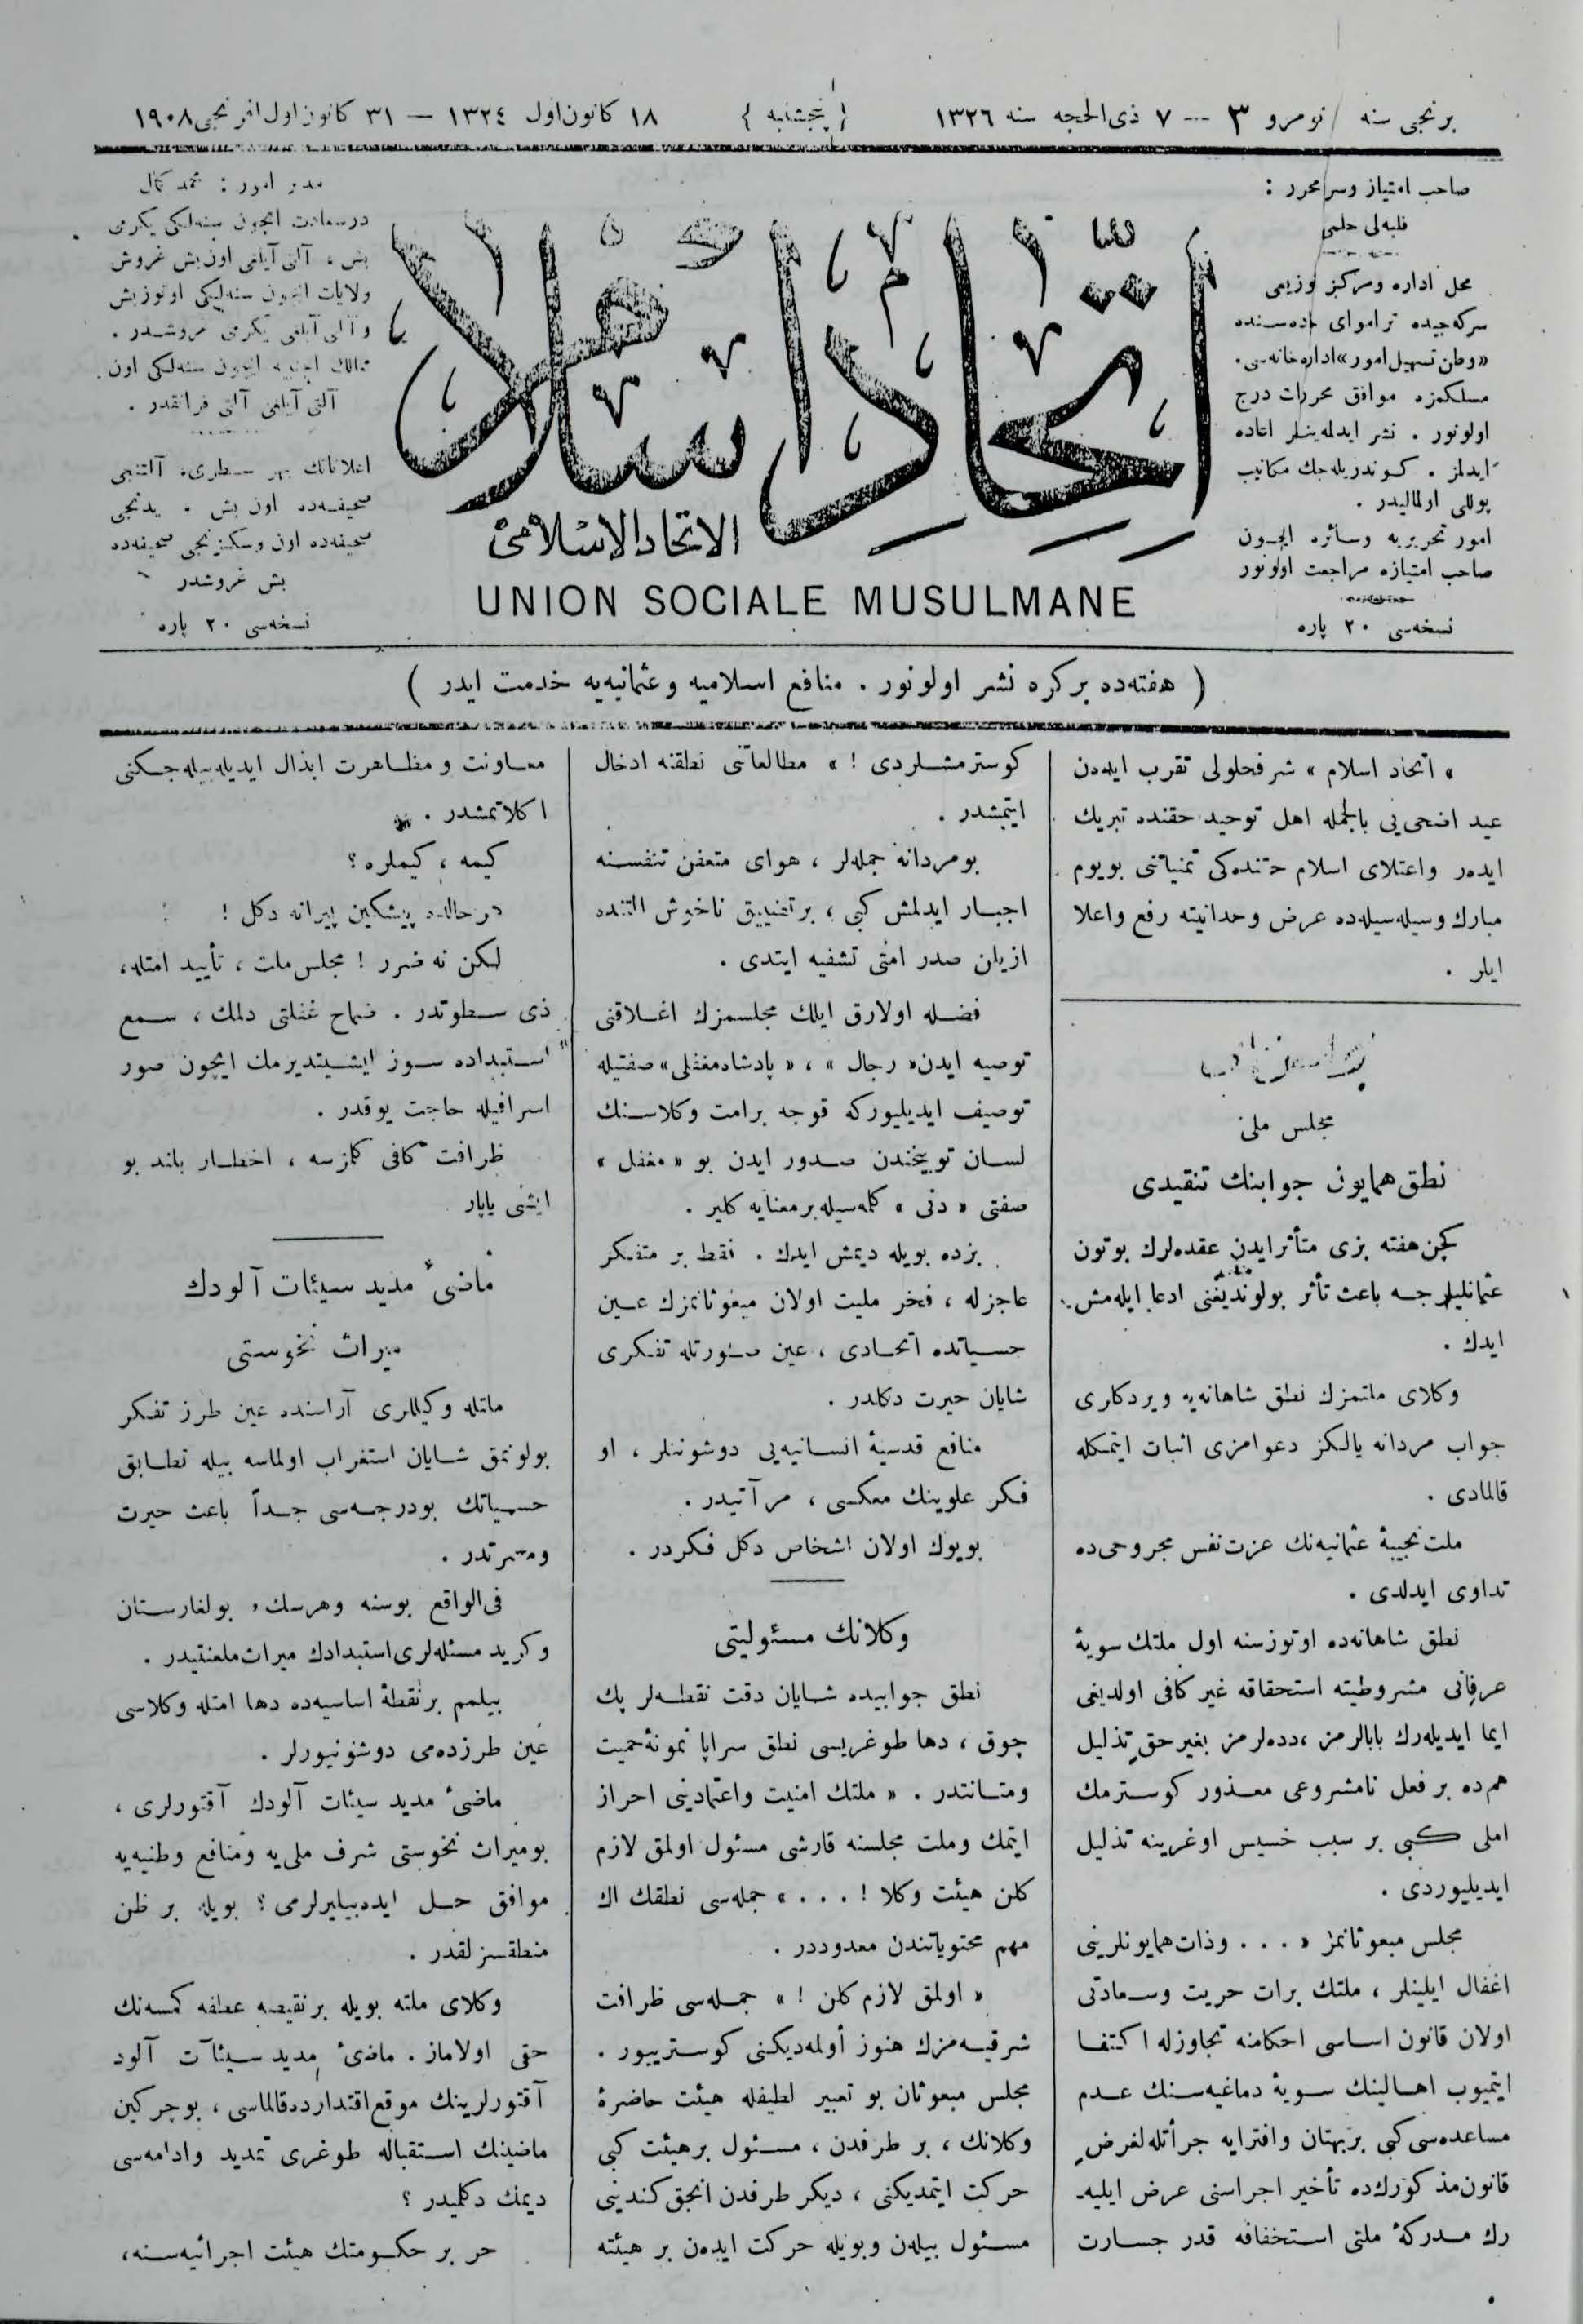 برنجی سنه نومرو ٣ — ٧ ذی الحجه سنه ١٣٢٦ { پنجشنبه } ١٨ كانون اول ١٣٢٤ — ٣١ كانون اول افرنجی ١٩٠٨
صاحب امتیاز وسرمحرر :
فلبه‌لی حلمی
محل اداره ومركز توزیعی
سركه‌جیده ترامواى جاده‌سنده
«وطن تسهیل امور» اداره‌خانه‌سی.
مسلكمزه موافق محررات درج
اولونور . نشر ایدلمه‌ینلر اعاده
ایدلمز . كوندریله‌جك مكاتیب
پوللی اولمالیدر .
امور تحریریه وسائره ایچون
صاحب امتیازه مراجعت اولونور
نسخه‌سی ٢٠ پاره
اتحاد اسلام
الاتحاد الاسلامی
UNION SOCIALE MUSULMANE
مدیر امور : محمد كمال
درسعادت ایچون سنه‌لكی یكرمی
بش ، آلتی آیلغی اون بش غروش
ولایات ایچون سنه‌لیكی اوتوزبش
وآلتی آیلغی یكرمی غروشدر .
ممالك اجنبیه ایچون سنه‌لكی اون
آلتی آیلغی آلتی فرانقدر .
اعلاناتك بهر سطری، آلتنجی
صحیفه‌ده اون بش ، یدنجی
صحیفه‌ده اون وسكزنجی صحیفه‌ده
بش غروشدر
نسخه‌سی ٢٠ پاره
( هفته‌ده بر كره نشر اولونور . منافع اسلامیه و عثمانیه‌یه خدمت ایدر )
« اتحاد اسلام » شرفحلولی تقرب ایله‌دن
عید اضحی‌یی بالجمله اهل توحید حقنده تبریك
ایدەر واعتلای اسلام حقنده‌كی تمنیاتنی بویوم
مبارك وسیله‌سیله‌ده عرض وحدانیته رفع واعلا
ایلر .
مجلس ملی
نطق همایون جوابنك تنقیدی
كچن هفته بزی متأثرایدن عقده‌لرك بوتون
عثمانلیلرجه باعث تأثر بولوندیغنی ادعا ایله‌مش
ایدك .
وكلای ملتمزك نطق شاهانه‌یه ویردكاری
جواب مردانه یالكز دعوامزی اثبات ایتمكله
قالمادی .
ملت نجیبهٔ عثمانیه‌نك عزت نفس مجروحی‌ده
تداوی ایدلدی .
نطق شاهانه‌ده اوتوز سنه اول ملتك سویهٔ
عرفانی مشروطیته استحقاقه غیر كافی اولدیغی
ایما ایدیله‌رك بابالرمز ، دده‌لرمز بغیرحق تذلیل
هم‌ده بر فعل نامشروعی معذور كوسترمك
املی كبی بر سبب خسیس اوغرینه تذلیل
ایدیلیوردی .
مجلس مبعوثانمز « . . . وذات همایونلرینی
اغفال ایلینلر ، ملتك برات حریت وسعادتی
اولان قانون اساسی احكامنه تجاوزله اكتفا
ایتمیوب اهالینك سویهٔ دماغیه‌سنك عدم
مساعده‌سی كبی بربهتان وافترایه جرأتله لغرض
قانون مذكورك‌ده تأخیر اجراسنی عرض ایلیه‌ـ
رك مدركهٔ ملتی استخفافه قدر جسارت
كوسترمشلردی ! » مطالعاتنی نطقنه ادخال
ایتمشدر .
بومردانه جمله‌لر ، هوای متعفن تنفسنه
اجبار ایدلمش كبی ، برتضییق ناخوش التنده
ازیلن صدر امتی تشفیه ایتدی .
فضله اولارق ایلك مجلسمزك اغلاقنی
توصیه ایدن « رجال » ، « پادشاه‌مغفلی » صفتیله
توصیف ایدیلیوركه قوجه برامت وكلاسنك
لسان توبیخندن صدور ایدن بو « مغفل »
صفتی « دنی » كلمه‌سیله برمعنایه كلیر .
بزده بویله دیمش ایدك . فقط بر متفكر
عاجزله ، فخر ملیت اولان مبعوثانمزك عین
حسیاتده اتحادی ، عین صورتله تفكری
شایان حیرت دكلدر .
منافع قدسیهٔ انسانیه‌یی دوشوننلر ، او
فكر علوینك معكسی ، مرآتیدر .
بویوك اولان اشخاص دكل فكردر .
وكلانك مسئولیتی
نطق جوابیده شایان دقت نقطه‌لر پك
چوق ، دها طوغریسی نطق سراپا نمونهٔ حمیت
ومتانتدر . « ملتك امنیت واعتمادینی احراز
ایتمك وملت مجلسنه قارشی مسئول اولمق لازم
كلن هیئت وكلا ! . . . » جمله‌سی نطقك اك
مهم محتویاتندن معدوددر .
« اولمق لازم كلن ! » جمله‌سی ظرافت
شرقیه‌مزك هنوز أولمه‌دیكنی كوستریبور .
مجلس مبعوثان بو تعبیر لطیفله هیئت حاضرهٔ
وكلانك ، بر طرفدن ، مسئول برهیئت كبی
حركت ایتمدیكنی ، دیكر طرفدن انجق كندینی
مسئول بیلەن وبویله حركت ایدەن بر هیئته
معاونت و مظاهرت ابذال ایدیله‌بیله‌جكنی
اكلاتمشدر .
كیمه ، كیملره ؟
درحالده پیشكین پیرانه دكل !
لكن نه ضرر ! مجلس ملت ، تأیید امتله،
ذی سطوتدر . صماخ غفلتی دلمك ، سمع
استبداده سوز ایشیتدیرمك ایچون صور
اسرافیله حاجت یوقدر .
ظرافت كافی كلمزسه ، اخطار بلند بو
ایشی یاپار
ماضیٔ مدید سیئات آلودك
میراث نخوستی
ملتله وكیللری آراسنده عین طرز تفكر
بولونمق شایان استغراب اولماسه بیله تطابق
حسیاتك بودرجه‌سی جداً باعث حیرت
ومسرتدر .
فی‌الواقع بوسنه وهرسك، بولغارستان
وكرید مسئله‌لری استبدادك میراث ملعنتیدر .
بیلمم برنقطهٔ اساسیه‌ده دها امتله وكلاسی
عین طرزده‌می دوشونیورلر .
ماضیٔ مدید سیئات آلودك آقتورلری ،
بومیراث نخوستی شرف ملی‌یه ومنافع وطنیه‌یه
موافق حل ایده‌بیلیرلرمی ؟ بویله بر ظن
منطقسزلقدر .
وكلای ملته بویله برنقیصه عطفه كمسه‌نك
حقی اولاماز . ماضیٔ مدید سیئات آلود
آقتورلرینك موقع اقتدارده‌قالماسی ، بوچركین
ماضینك استقباله طوغری تمدید وادامه‌سی
دیمك دكلمیدر ؟
حر بر حكومتك هیئت اجرائیه‌سنه ،